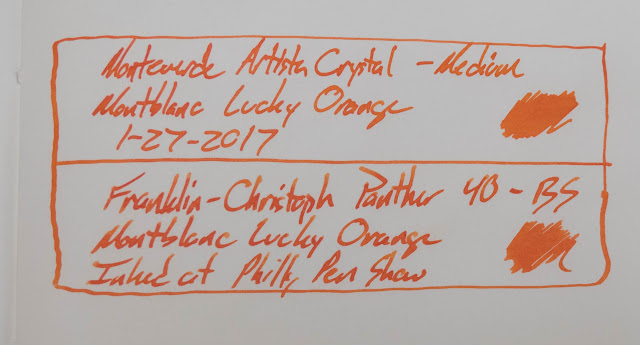 Monteverde Artista Crystal - Medium
Montblanc Lucky Orange
1-27-2017
Franklin-Christoph Panther 40 - BS
Montblanc Lucky Orange
Inked at Philly Pen Show